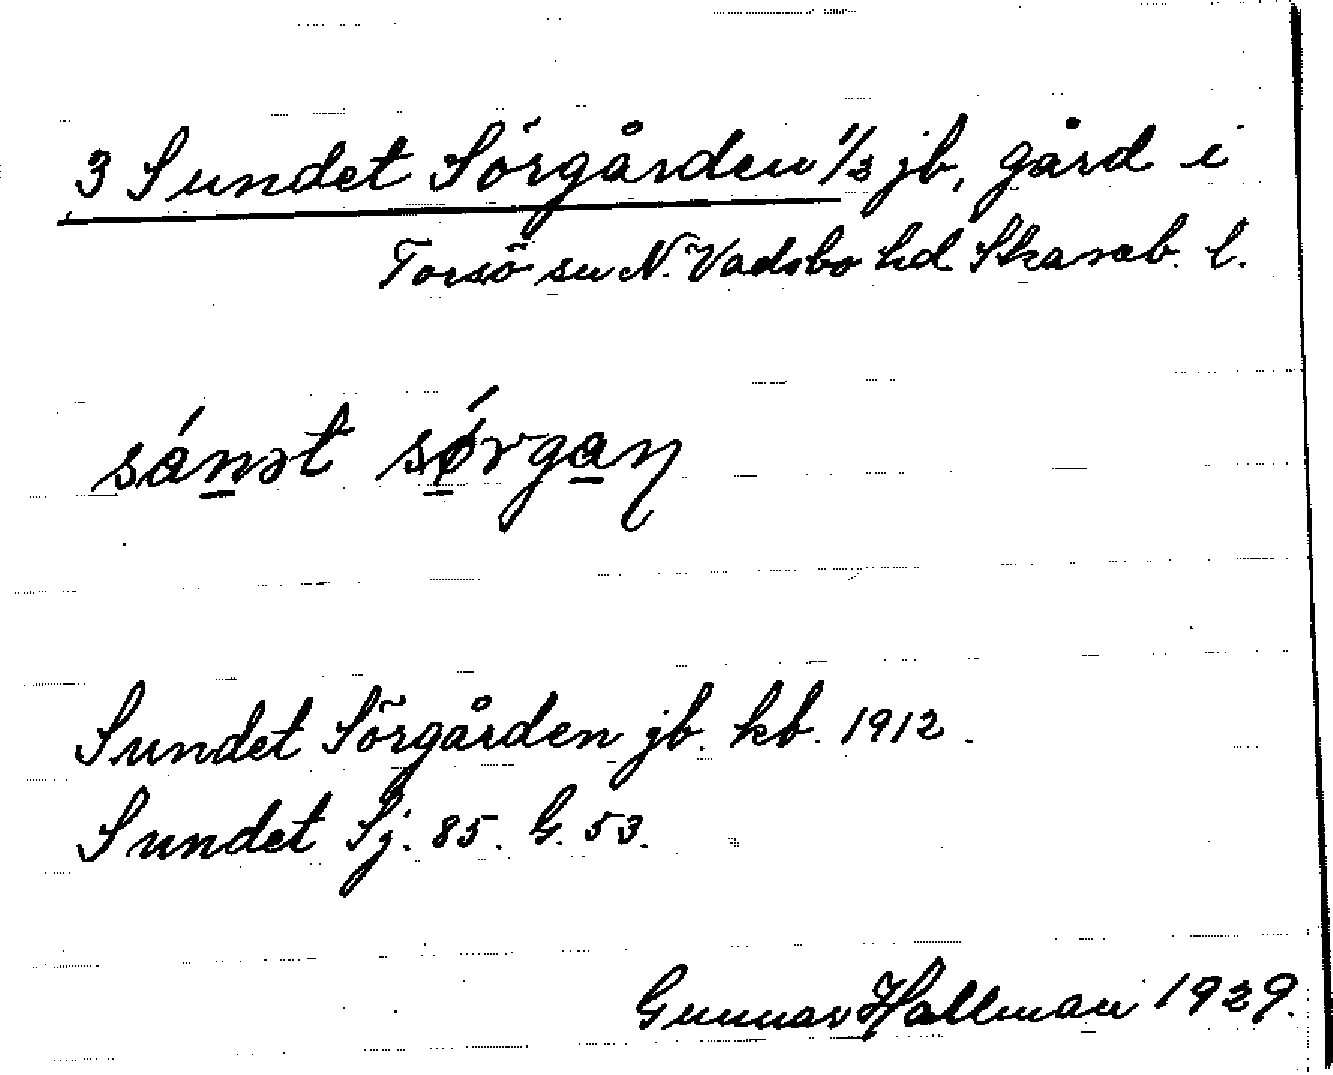 3 Sundet Sörgården 1/3 jb, gård i
Torsö sn N. Vadsbo hd Skarab. l.
sánət sǿrgaɳ
Sundet Sörgården jb. kb. 1912.
Sundet Sj. 85. G. 53.
Gunnar Hallman 1929.